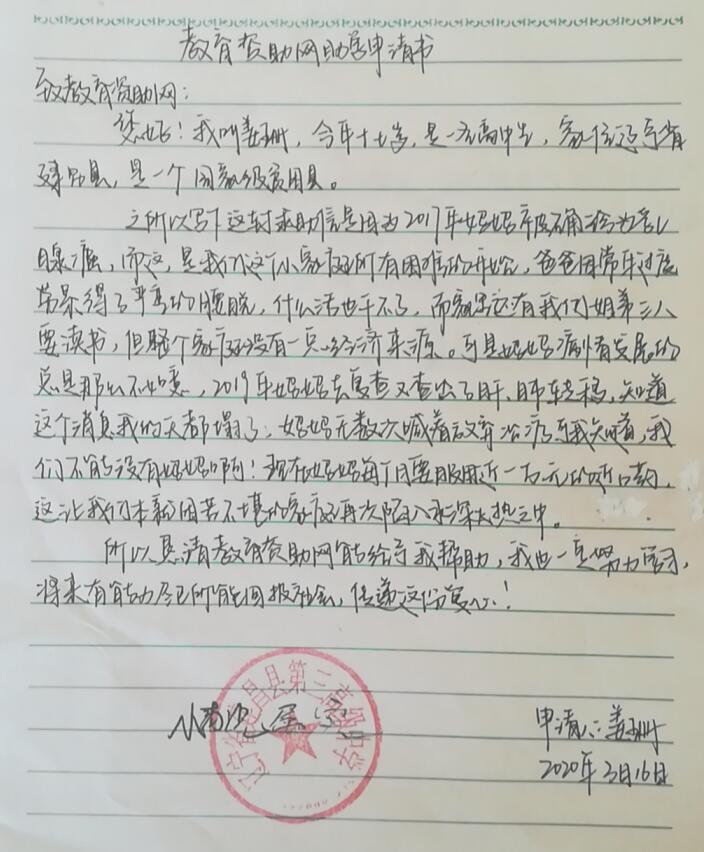 教育资助网助学申请书
致教育资助网：
您好！我叫姜珊，今年十七岁，是一名高中生，家住辽宁省
建昌县，是一个国家级贫困县。
之所以写下这封求助信是因为2017年妈妈被确诊为乳
腺癌，而这，是我们这个小家庭所有困难的开始，爸爸因常年过度
劳累得了严重的腰脱，什么活也干不了，而家里还有我们姐弟三人
要读书，但整个家庭没有一点经济来源。可是妈妈病情发展的
总是那么不如意，2019年妈妈去复查又查出了肝、肺转移，知道
这个消息我的天都塌了，妈妈无数次喊着放弃治疗可我知道，我
们不能没有妈妈啊！现在妈妈每个月要服用近一万元的进口药，
这让我们本就困苦不堪的家庭再次陷入水深火热之中。
所以恳请教育资助网能给予我帮助，我也一定努力学习，
将来有能力尽己所能回报社会，传递这份爱心！
情况属实
辽宁省建昌县第三高级中学
申请人：姜珊
2020年3月16日